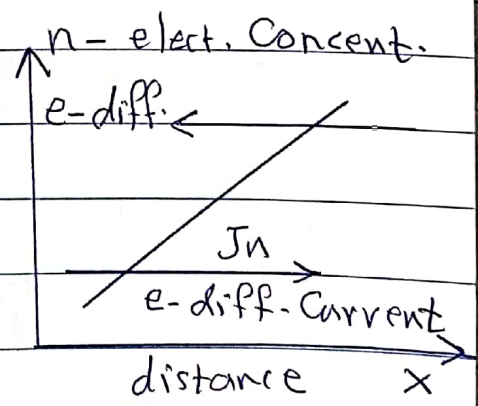 n- elect. Concent.
e-diff.
Jn
e-diff- Current
distance x